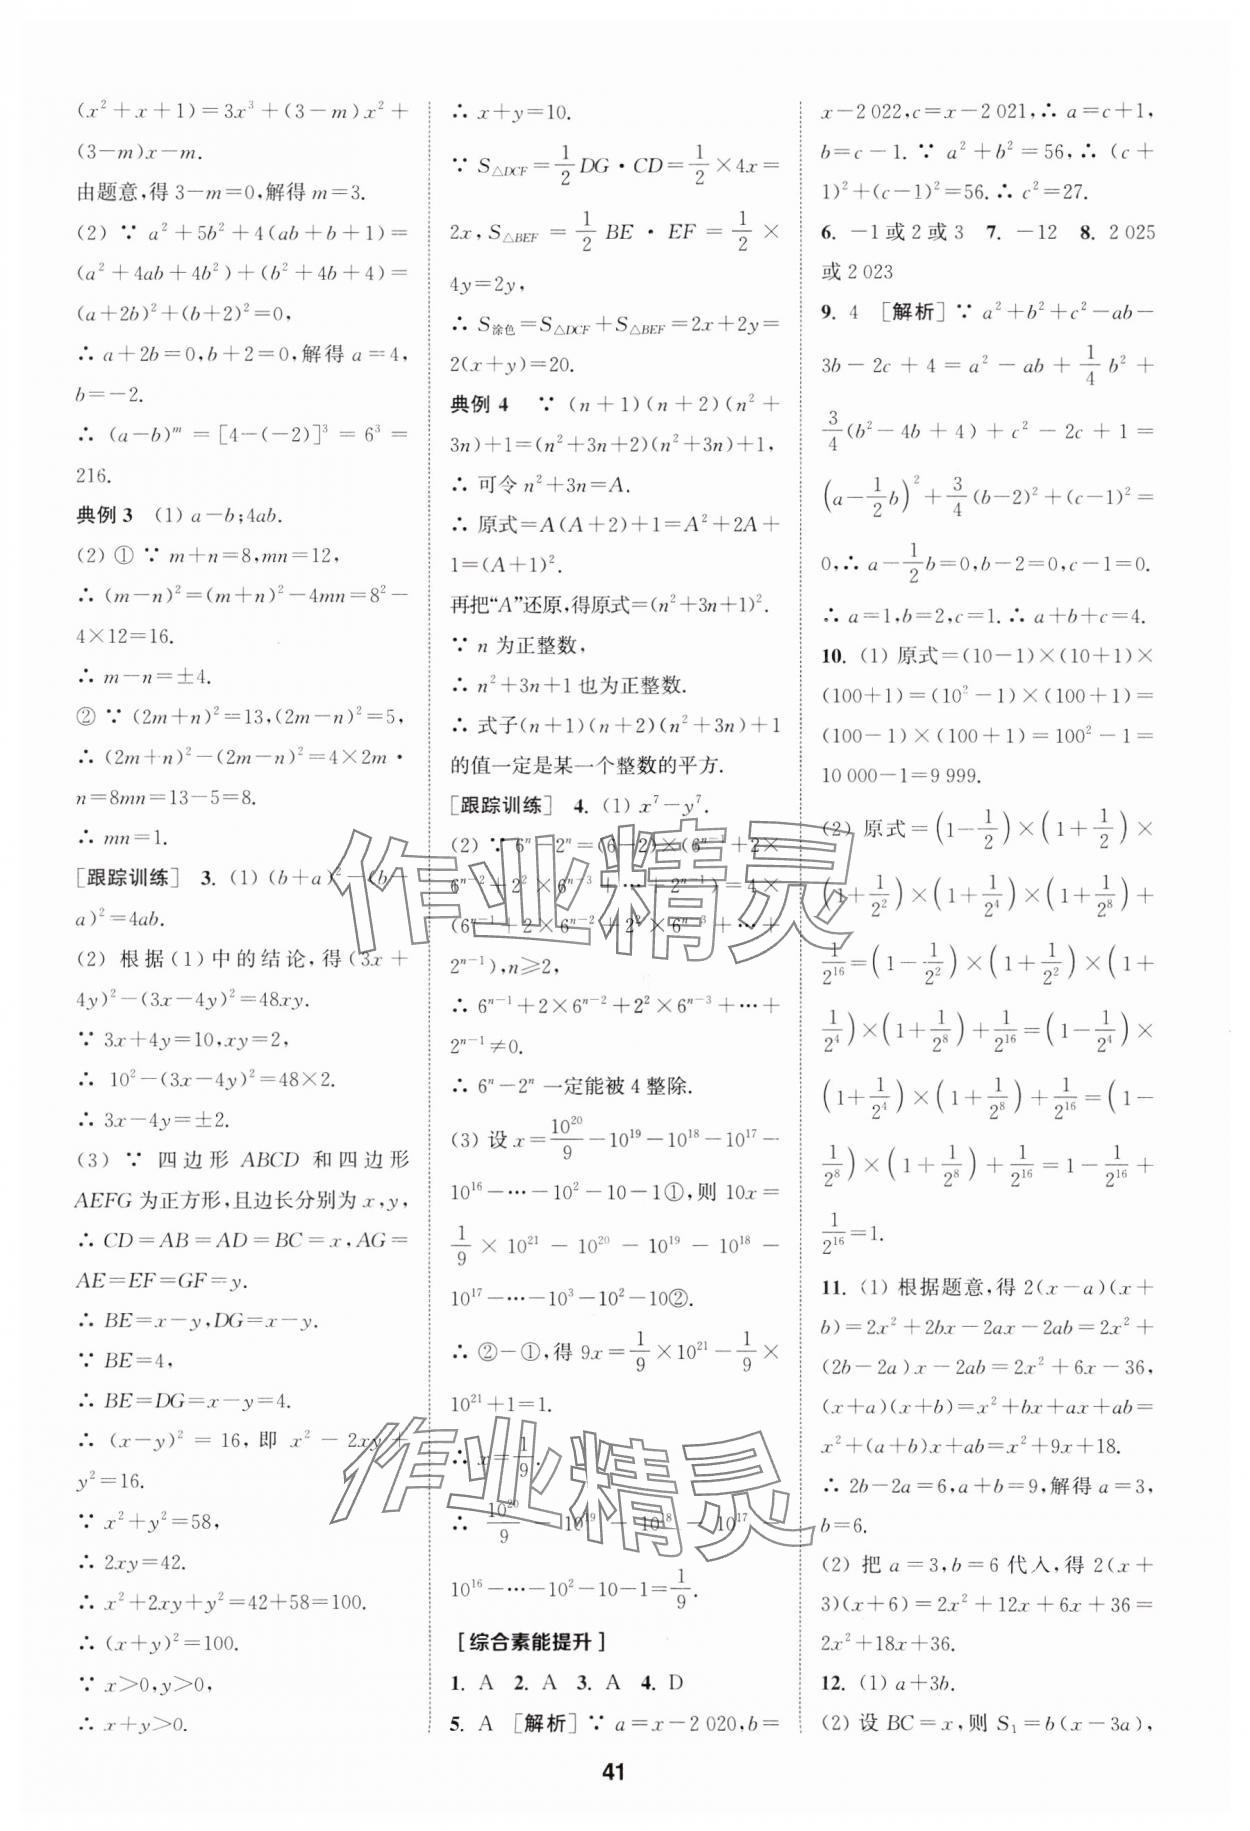 (x²+x+1)=3x³+(3-m)x²+
(3-m)x-m.
由题意,得 3-m=0,解得 m=3.
(2) ∵ a²+5b²+4(ab+b+1)=
(a²+4ab+4b²)+(b²+4b+4)=
(a+2b)²+(b+2)²=0,
∴ a+2b=0,b+2=0,解得 a=4,
b=-2.
∴ (a-b)ᵐ=[4-(-2)]³=6³=
216.
典例 3 (1) a-b;4ab.
(2) ① ∵ m+n=8,mn=12,
∴ (m-n)²=(m+n)²-4mn=8²-
4×12=16.
∴ m-n=±4.
② ∵ (2m+n)²=13,(2m-n)²=5,
∴ (2m+n)²-(2m-n)²=4×2m·
n=8mn=13-5=8.
∴ mn=1.
[跟踪训练] 3. (1) (b+a)²-(b-
a)²=4ab.
(2) 根据(1)中的结论,得(3x+
4y)²-(3x-4y)²=48xy.
∵ 3x+4y=10,xy=2,
∴ 10²-(3x-4y)²=48×2.
∴ 3x-4y=±2.
(3) ∵ 四边形 ABCD 和四边形
AEFG 为正方形,且边长分别为 x,y,
∴ CD=AB=AD=BC=x,AG=
AE=EF=GF=y.
∴ BE=x-y,DG=x-y.
∵ BE=4,
∴ BE=DG=x-y=4.
∴ (x-y)²=16,即 x²-2xy+
y²=16.
∵ x²+y²=58,
∴ 2xy=42.
∴ x²+2xy+y²=42+58=100.
∴ (x+y)²=100.
∵ x>0,y>0,
∴ x+y>0.
∴ x+y=10.
∵ S△DCF=1/2 DG·CD=1/2×4x=
2x,S△BEF=1/2 BE·EF=1/2×
4y=2y,
∴ S涂色=S△DCF+S△BEF=2x+2y=
2(x+y)=20.
典例 4 ∵ (n+1)(n+2)(n²+
3n)+1=(n²+3n+2)(n²+3n)+1,
∴ 可令 n²+3n=A.
∴ 原式=A(A+2)+1=A²+2A+
1=(A+1)².
再把“A”还原,得原式=(n²+3n+1)².
∵ n 为正整数,
∴ n²+3n+1 也为正整数.
∴ 式子(n+1)(n+2)(n²+3n)+1
的值一定是某一个整数的平方.
[跟踪训练] 4. (1) x⁷-y⁷.
(2) ∵ 6ⁿ-2ⁿ=(6-2)×(6ⁿ⁻¹+2×
6ⁿ⁻²+2²×6ⁿ⁻³+…+2ⁿ⁻¹)=4×
(6ⁿ⁻¹+2×6ⁿ⁻²+2²×6ⁿ⁻³+…+
2ⁿ⁻¹),n≥2,
∴ 6ⁿ⁻¹+2×6ⁿ⁻²+2²×6ⁿ⁻³+…+
2ⁿ⁻¹≠0.
∴ 6ⁿ-2ⁿ 一定能被 4 整除.
(3) 设 x=10²⁰/9-10¹⁹-10¹⁸-10¹⁷-
10¹⁶-…-10²-10-1①,则 10x=
1/9×10²¹-10²⁰-10¹⁹-10¹⁸-
10¹⁷-…-10³-10²-10②.
∴ ②-①,得 9x=1/9×10²¹-1/9×
10²¹+1=1.
∴ x=1/9.
∴ 10²⁰/9-10¹⁹-10¹⁸-10¹⁷-
10¹⁶-…-10²-10-1=1/9.
[综合素能提升]
1. A 2. A 3. A 4. D
5. A [解析] ∵ a=x-2 020,b=
x-2 022,c=x-2 021,∴ a=c+1,
b=c-1. ∵ a²+b²=56,∴ (c+
1)²+(c-1)²=56. ∴ c²=27.
6. -1或2或3 7. -12 8. 2 025
或 2 023
9. 4 [解析] ∵ a²+b²+c²-ab-
3b-2c+4=a²-ab+1/4 b²+
3/4(b²-4b+4)+c²-2c+1=
(a-1/2 b)²+3/4(b-2)²+(c-1)²=
0,∴ a-1/2 b=0,b-2=0,c-1=0.
∴ a=1,b=2,c=1. ∴ a+b+c=4.
10. (1) 原式=(10-1)×(10+1)×
(100+1)=(10²-1)×(100+1)=
(100-1)×(100+1)=100²-1=
10 000-1=9 999.
(2) 原式=(1-1/2)×(1+1/2)×
(1+1/2²)×(1+1/2⁴)×(1+1/2⁸)+
1/2¹⁶=(1-1/2²)×(1+1/2²)×(1+
1/2⁴)×(1+1/2⁸)+1/2¹⁶=(1-1/2⁴)×
(1+1/2⁴)×(1+1/2⁸)+1/2¹⁶=(1-
1/2⁸)×(1+1/2⁸)+1/2¹⁶=1-1/2¹⁶+
1/2¹⁶=1.
11. (1) 根据题意,得 2(x-a)(x+
b)=2x²+2bx-2ax-2ab=2x²+
(2b-2a)x-2ab=2x²+6x-36,
(x+a)(x+b)=x²+bx+ax+ab=
x²+(a+b)x+ab=x²+9x+18.
∴ 2b-2a=6,a+b=9,解得 a=3,
b=6.
(2) 把 a=3,b=6 代入,得 2(x+
3)(x+6)=2x²+12x+6x+36=
2x²+18x+36.
12. (1) a+3b.
(2) 设 BC=x,则 S₁=b(x-3a),
41
作业精灵
作业精灵